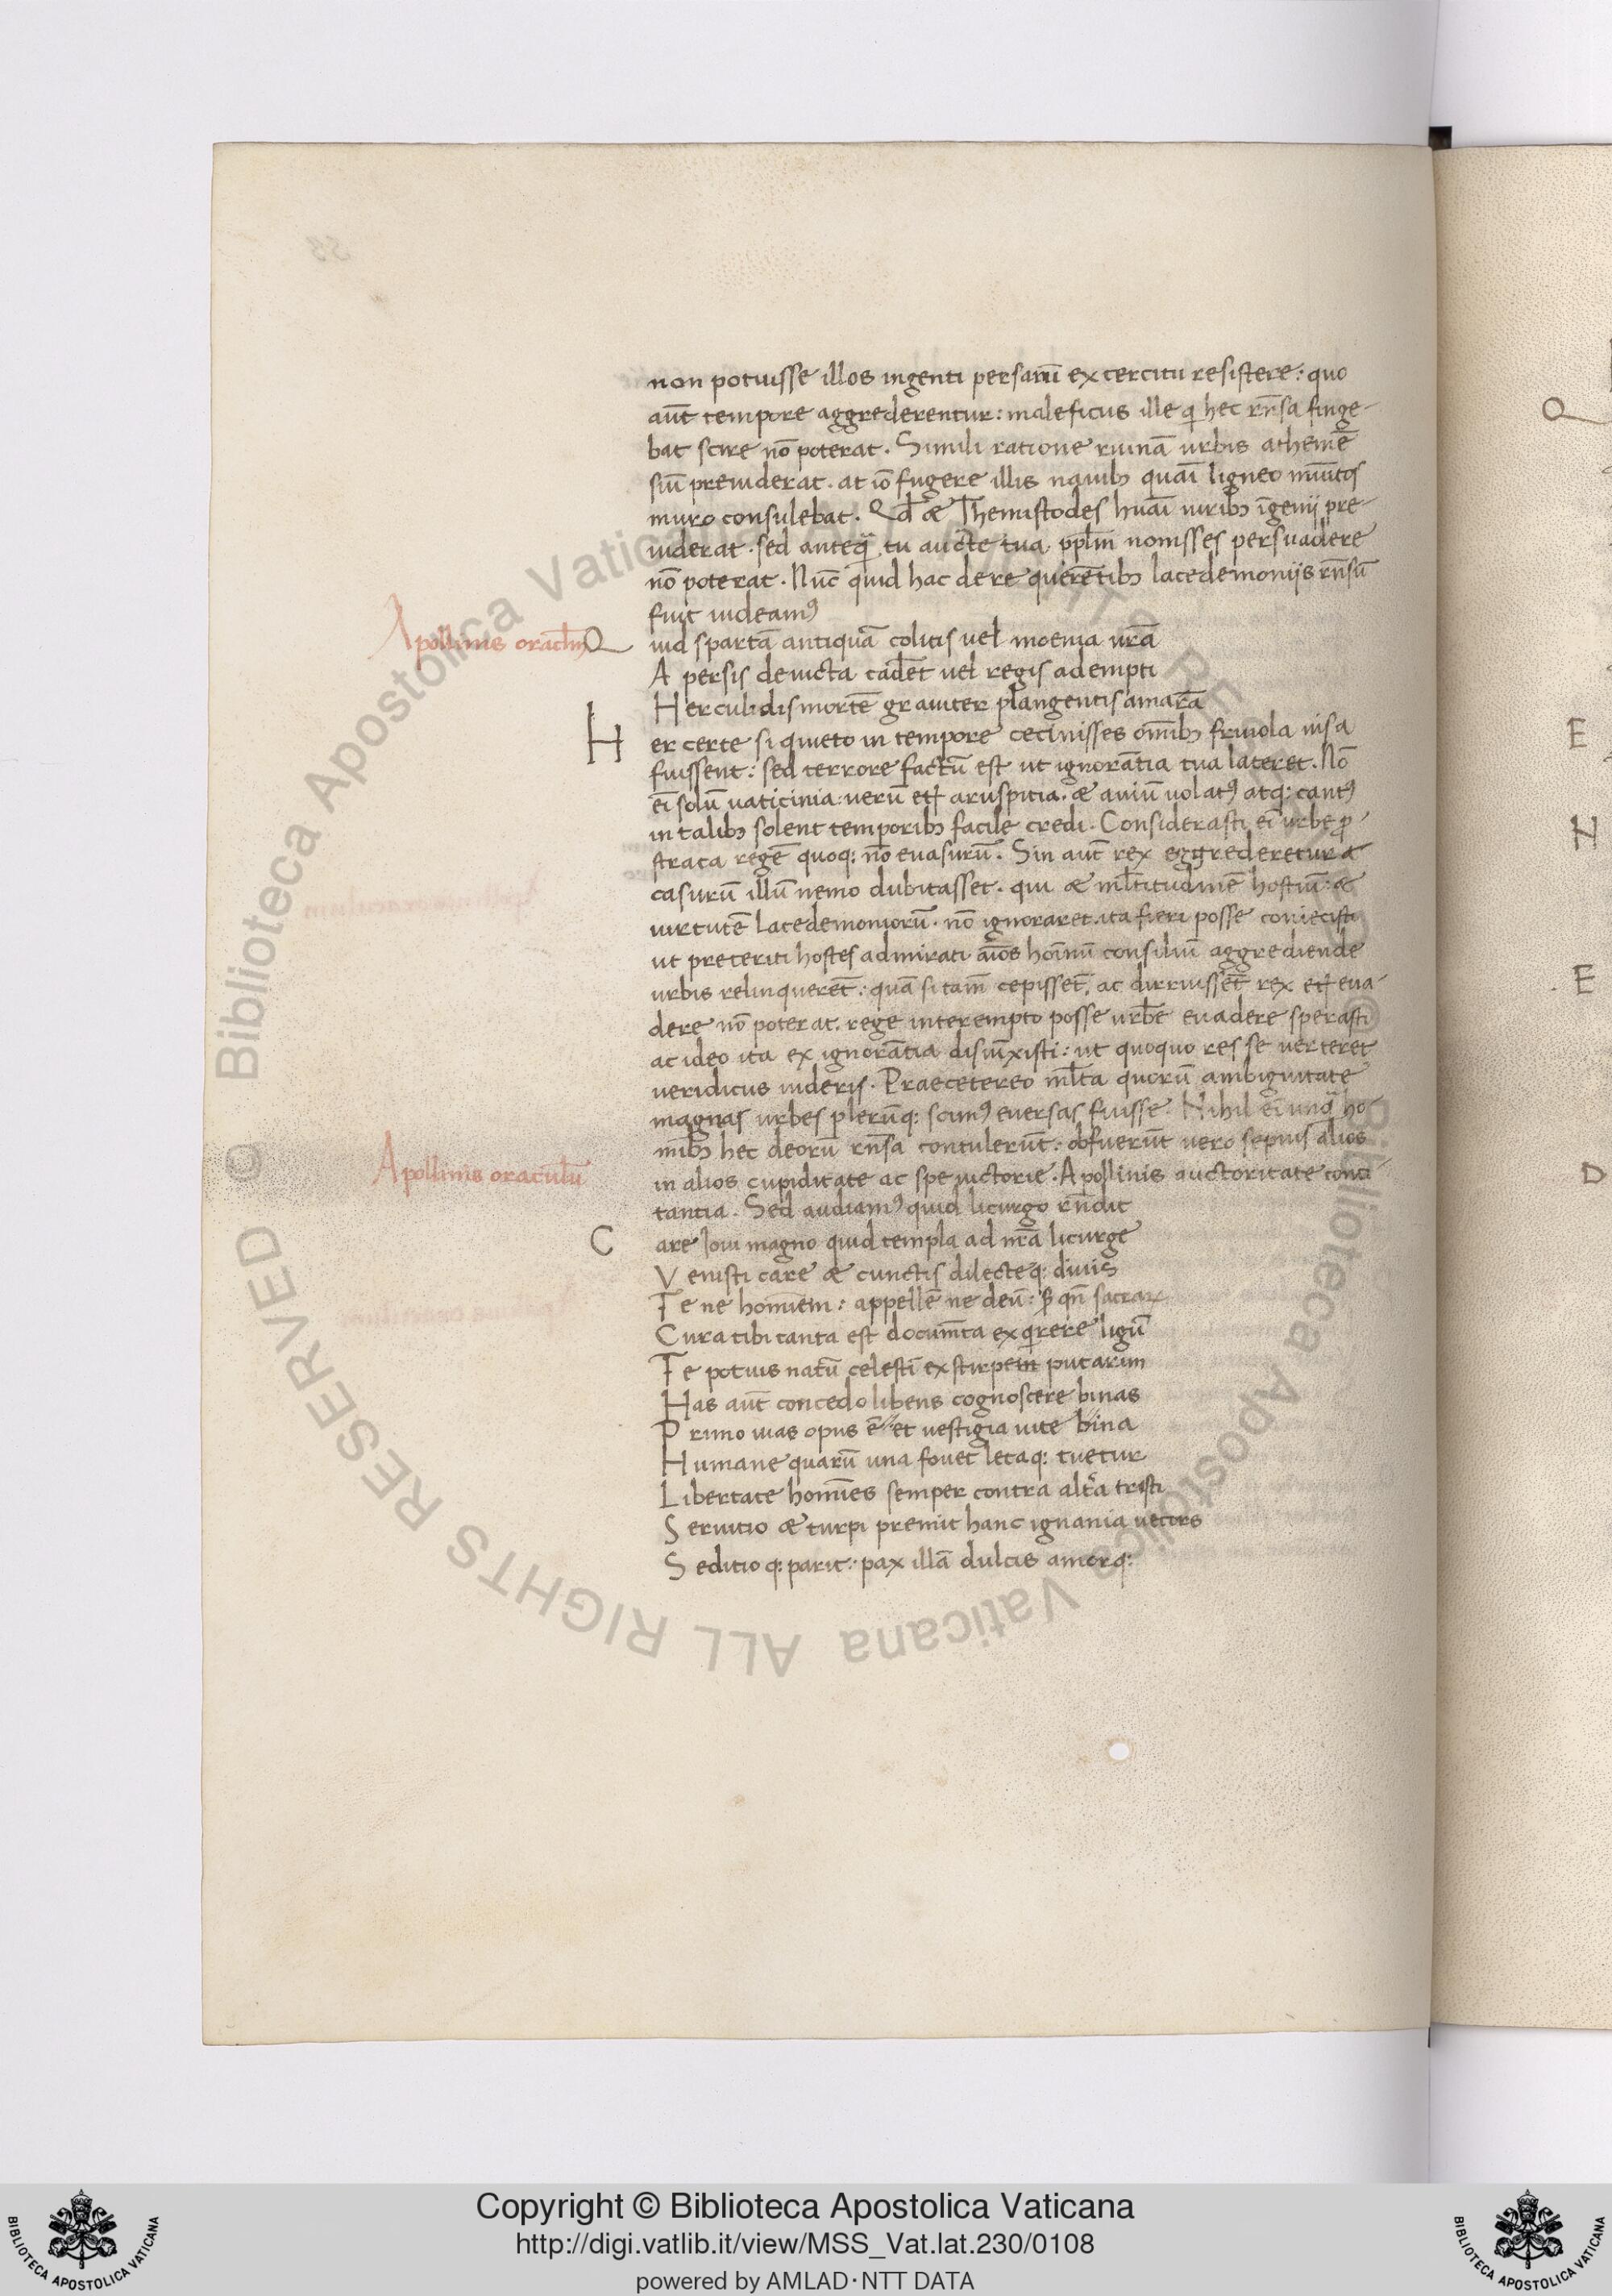 non potuisse illos ingenti persarũ excercitu resistere: quo
aũt tempore aggrederentur: maleficus ille q hec rñsa finge-
bat scire nõ poterat. Simili ratione ruinã urbis atheniẽ
siũ preuiderat. at iõ fugere illis nauibꝫ quasi ligneo munitos
muro consulebat. Qd̃ & Themistodes huãi uiribꝫ ĩgenij pre-
uiderat. sed anteq̃ tu aucte tua pplm̃ nouisses persuadere
nõ poterat. Nũc quid hac de re querẽtibꝫ lacedemonijs rñsũ
fuit uideamꝰ
Apollinis oraclm̃
Quid spartã antiquã colitis uel moenia urã
A persis deuicta cadẽt uel regis adempti
Herculidis mortẽ grauiter plangentis amarã
Hec certe si quieto in tempore cecinisses oĩnibꝫ friuola uisa
fuissent: sed terrore factũ est ut ignorãtia tua lateret. Nõ
eĩ solũ uaticinia: uerũ etꝫ aruspitia. & auiũ uolatꝰ atq: cantꝰ
in talibꝫ solent temporibꝫ facile credi. Considerasti eĩ urbe p̃-
strata regẽ quoq: nõ euasurũ. Sin aũt rex eggrederetur &
casurũ illũ nemo dubitasset. qui & ml̃titudinẽ hostiũ: &
uirtutẽ lacedemoniorũ. nõ ignoraret. ita fieri posse coniecisti
ut preteriti hostes admirati aĩos hoĩnũ consiliũ aggrediende
urbis relinquerẽt: quã si tam̃ cepissẽt, ac dirruissẽt rex etꝫ eua-
dere nõ poterat. rege interempto posse urbẽ euadere sperasti
ac ideo ita ex ignorãtia disiũxisti: ut quoquo res se uerteret
ueridicus uideris. Praecetereo ml̃ta quorũ ambiguitate
magnas urbes plerũq: scimꝰ euersas fuisse. Nihil eĩ unq̃ ho-
mibꝫ hec deorũ rñsa contulerũt: obfuerũt uero sepius alios
Apollinis oraculũ
in alios cupiditate ac spe uictorie. Apollinis auctoritate conci-
tantia. Sed audiamꝰ quid licurgo rñdit
Care Ioui magno quid templa ad nr̃a licurge
Venisti care & cunctis dilecteq: diuis
Te ne hominem: appellẽ ne deũ: s̃ qñ sacrarꝫ
Cura tibi tanta est documẽta exq̃rere ligũ
Te potuis natũ celesti ex stirpem putarim
Has aũt concedo libens cognoscere binas
Primo uias opus ẽ et uestigia uite bina
Humane quarũ una fouet letaq: tuetur
Libertate homĩes semper contra alt̃a tristi
Seruitio & turpi premit hanc ignauia uecors
Seditio q: parit: pax illã dulcis amorq:
Copyright © Biblioteca Apostolica Vaticana
http://digi.vatlib.it/view/MSS_Vat.lat.230/0108
powered by AMLAD·NTT DATA